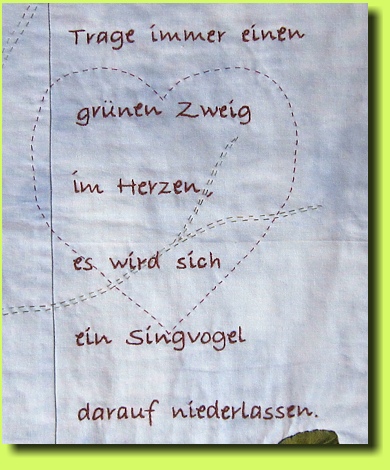 Trage immer einen
grünen Zweig
im Herzen,
es wird sich
ein Singvogel
darauf niederlassen.